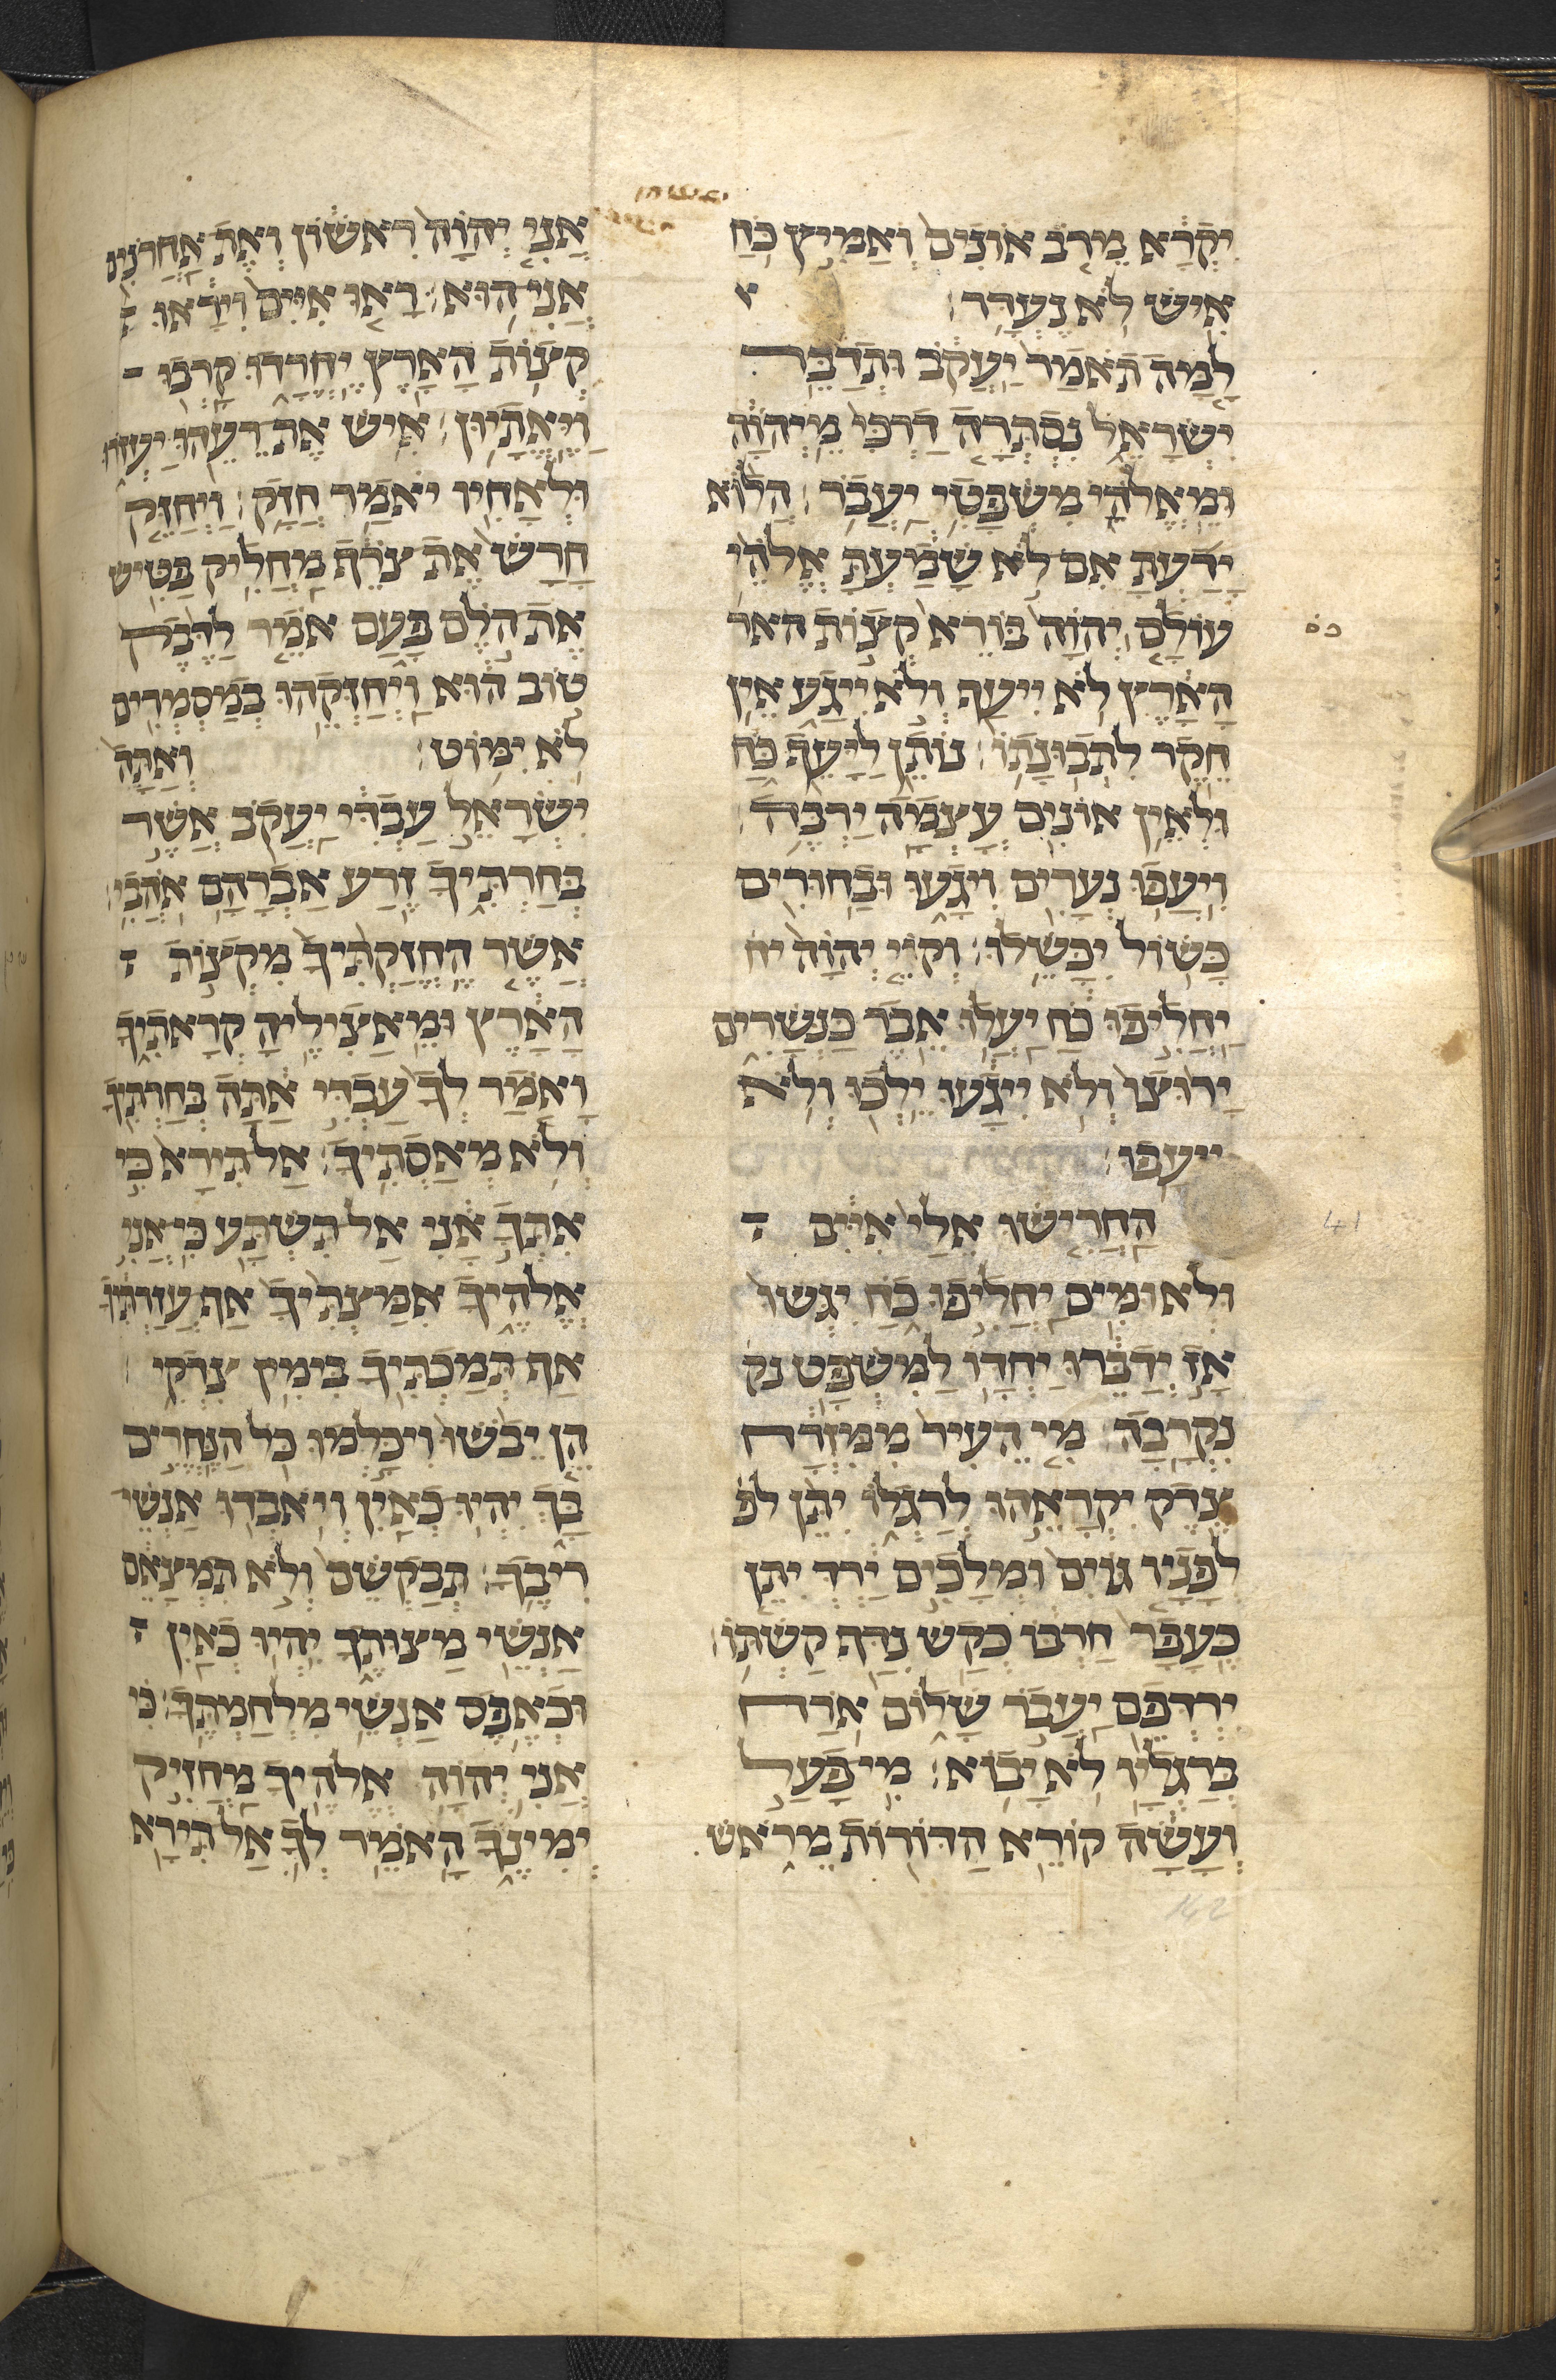 ישעיה
יִקְרָא מֵרֹב אוֹנִים וְאַמִּיץ כֹּחַ
אִישׁ לֹא נֶעְדָּר׃
לָמָּה תֹאמַר יַעֲקֹב וּתְדַבֵּר
יִשְׂרָאֵל נִסְתְּרָה דַרְכִּי מֵיְהוָה
וּמֵאֱלֹהַי מִשְׁפָּטִי יַעֲבֹר׃ הֲלוֹא
יָדַעְתָּ אִם לֹא שָׁמַעְתָּ אֱלֹהֵי
עוֹלָם יְהוָה בּוֹרֵא קְצוֹת האר
הָאָרֶץ לֹא יִיעַף וְלֹא יִיגָע אֵין
חֵקֶר לִתְבוּנָתוֹ׃ נוֹתֵן לַיָּעֵף כֹּחַ
וּלְאֵין אוֹנִים עָצְמָה יַרְבֶּה׃
וְיִעֲפוּ נְעָרִים וְיִגָעוּ וּבַחוּרִים
כָּשׁוֹל יִכָּשֵׁלוּ׃ וְקוֹיֵ יְהוָה יח
יַחֲלִיפוּ כֹחַ יַעֲלוּ אֵבֶר כַּנְּשָׁרִים
יָרוּצוּ וְלֹא יִיגָעוּ יֵלְכוּ וְלֹא
יִיעָפוּ׃
הַחֲרִישׁוּ אֵלַי אִיִּים
41
וּלְאוּמִּים יַחֲלִיפוּ כֹחַ יִגְּשׁוּ
אָז יְדַבֵּרוּ יַחְדָּו לַמִּשְׁפָּט נק
נִקְרָבָה׃ מִי הֵעִיר מִמִּזְרָח
צֶדֶק יִקְרָאֵהוּ לְרַגְלוֹ יִתֵּן לפ
לְפָנָיו גּוֹיִם וּמְלָכִים יַרְדְּ יִתֵּן
כֶּעָפָר חַרְבּוֹ כְּקַשׁ נִדָּף קַשְׁתּוֹ׃
יִרְדְּפֵם יַעֲבֹר שָׁלוֹם אֹרַח
בְּרַגְלָיו לֹא יָבוֹא׃ מִי פָעַל
וְעָשָׂה קוֹרֵא הַדּוֹרוֹת מֵרֹאשׁ
אֲנִי יְהוָה רִאשׁוֹן וְאֶת אַחֲרֹנִים
אֲנִי הוּא׃ רָאוּ אִיִּים וְיִרָאוּ
קְצוֹת הָאָרֶץ יֶחֱרָדוּ קָרְבוּ
וַיֶּאֱתָיוּן׃ אִישׁ אֶת רֵעֵהוּ יַעְזֹרוּ
וּלְאָחִיו יֹאמַר חֲזָק׃ וַיְחַזֵּק
חָרָשׁ אֶת צֹרֵף מַחֲלִיק פַּטִּישׁ
אֶת הוֹלֶם פָּעַם אֹמֵר לַדֶּבֶק
טוֹב הוּא וַיְחַזְּקֵהוּ בְמַסְמְרִים
לֹא יִמּוֹט׃ וְאַתָּה
יִשְׂרָאֵל עַבְדִּי יַעֲקֹב אֲשֶׁר
בְּחַרְתִּיךָ זֶרַע אַבְרָהָם אֹהֲבִי׃
אֲשֶׁר הֶחֱזַקְתִּיךָ מִקְצוֹת
הָאָרֶץ וּמֵאֲצִילֶיהָ קְרָאתִיךָ
וָאֹמַר לְךָ עַבְדִּי אַתָּה בְּחַרְתִּיךָ
וְלֹא מְאַסְתִּיךָ׃ אַל תִּירָא כִּי
אִתְּךָ אָנִי אַל תִּשְׁתָּע כִּי אֲנִי
אֱלֹהֶיךָ אִמַּצְתִּיךָ אַף עֲזַרְתִּיךָ
אַף תְּמַכְתִּיךָ בִּימִין צִדְקִי׃
הֵן יֵבֹשׁוּ וְיִכָּלְמוּ כֹּל הַנֶּחֱרִים
בָּךְ יִהְיוּ כְאַיִן וְיֹאבְדוּ אַנְשֵׁי
רִיבֶךָ׃ תְּבַקְשֵׁם וְלֹא תִמְצָאֵם
אַנְשֵׁי מַצֻּתֶךָ יִהְיוּ כְאַיִן
וּכְאֶפֶס אַנְשֵׁי מִלְחַמְתֶּךָ׃ כִּי
אֲנִי יְהוָה אֱלֹהֶיךָ מַחֲזִיק
יְמִינֶךָ הָאֹמֵר לְךָ אַל תִּירָא
142